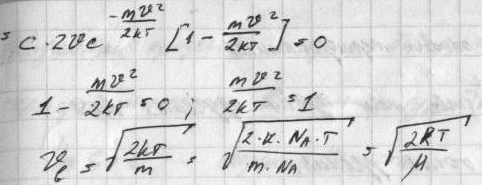 = C · 2ϑ e^{-mϑ²/2kT} [1 - mϑ²/2kT] = 0
1 - mϑ²/2kT = 0 ; mϑ²/2kT = 1
ϑ_в = √(2kT/m) = √(2·k·N_A·T/m·N_A) = √(2RT/μ)